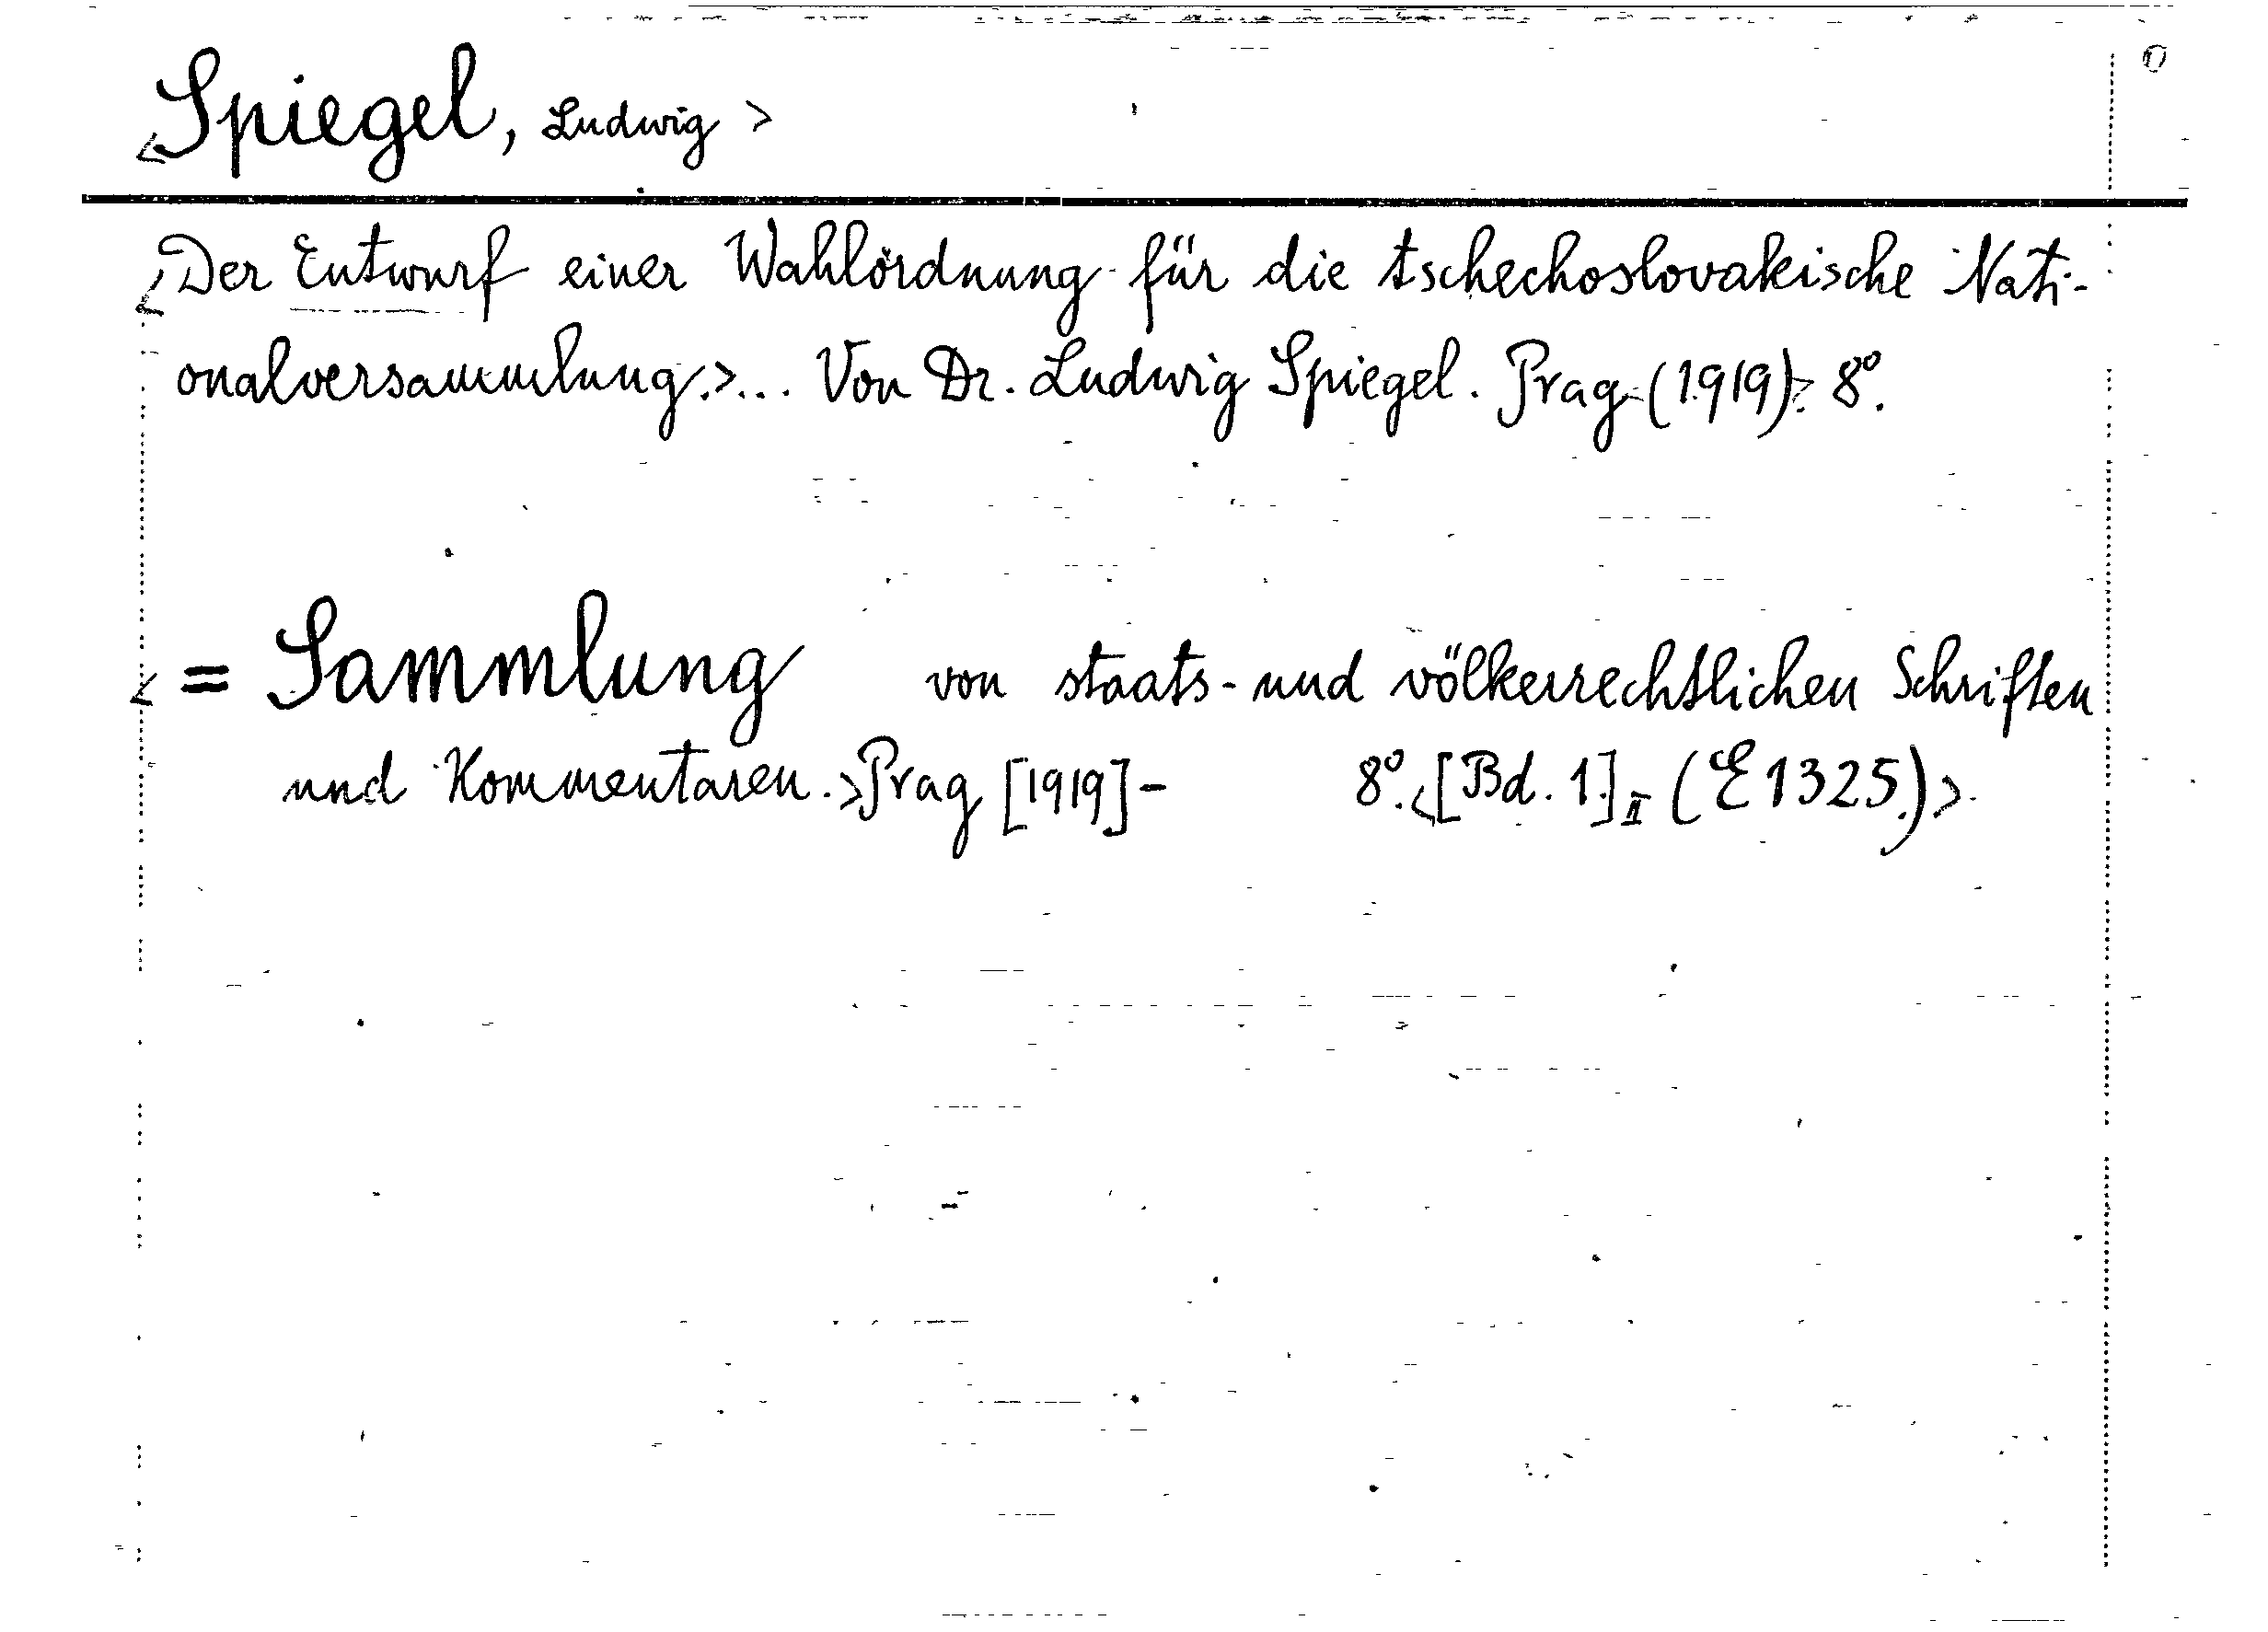 <Spiegel, Ludwig>
<Der Entwurf einer Wahlordnung für die tschechoslovakische Nati-
onalversammlung.>... Von Dr. Ludwig Spiegel. Prag (1919).> 8°.
<= Sammlung von staats- und völkerrechtlichen Schriften
und Kommentaren.> Prag [1919]- 8°. <[Bd. 1.] II (E 1325.)>